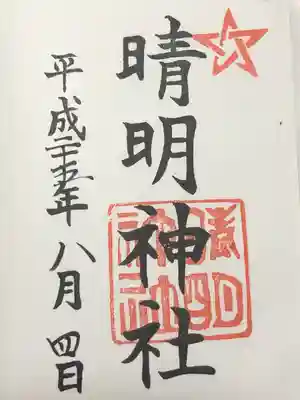 晴明神社
晴明
神社
平成二十五年八月四日